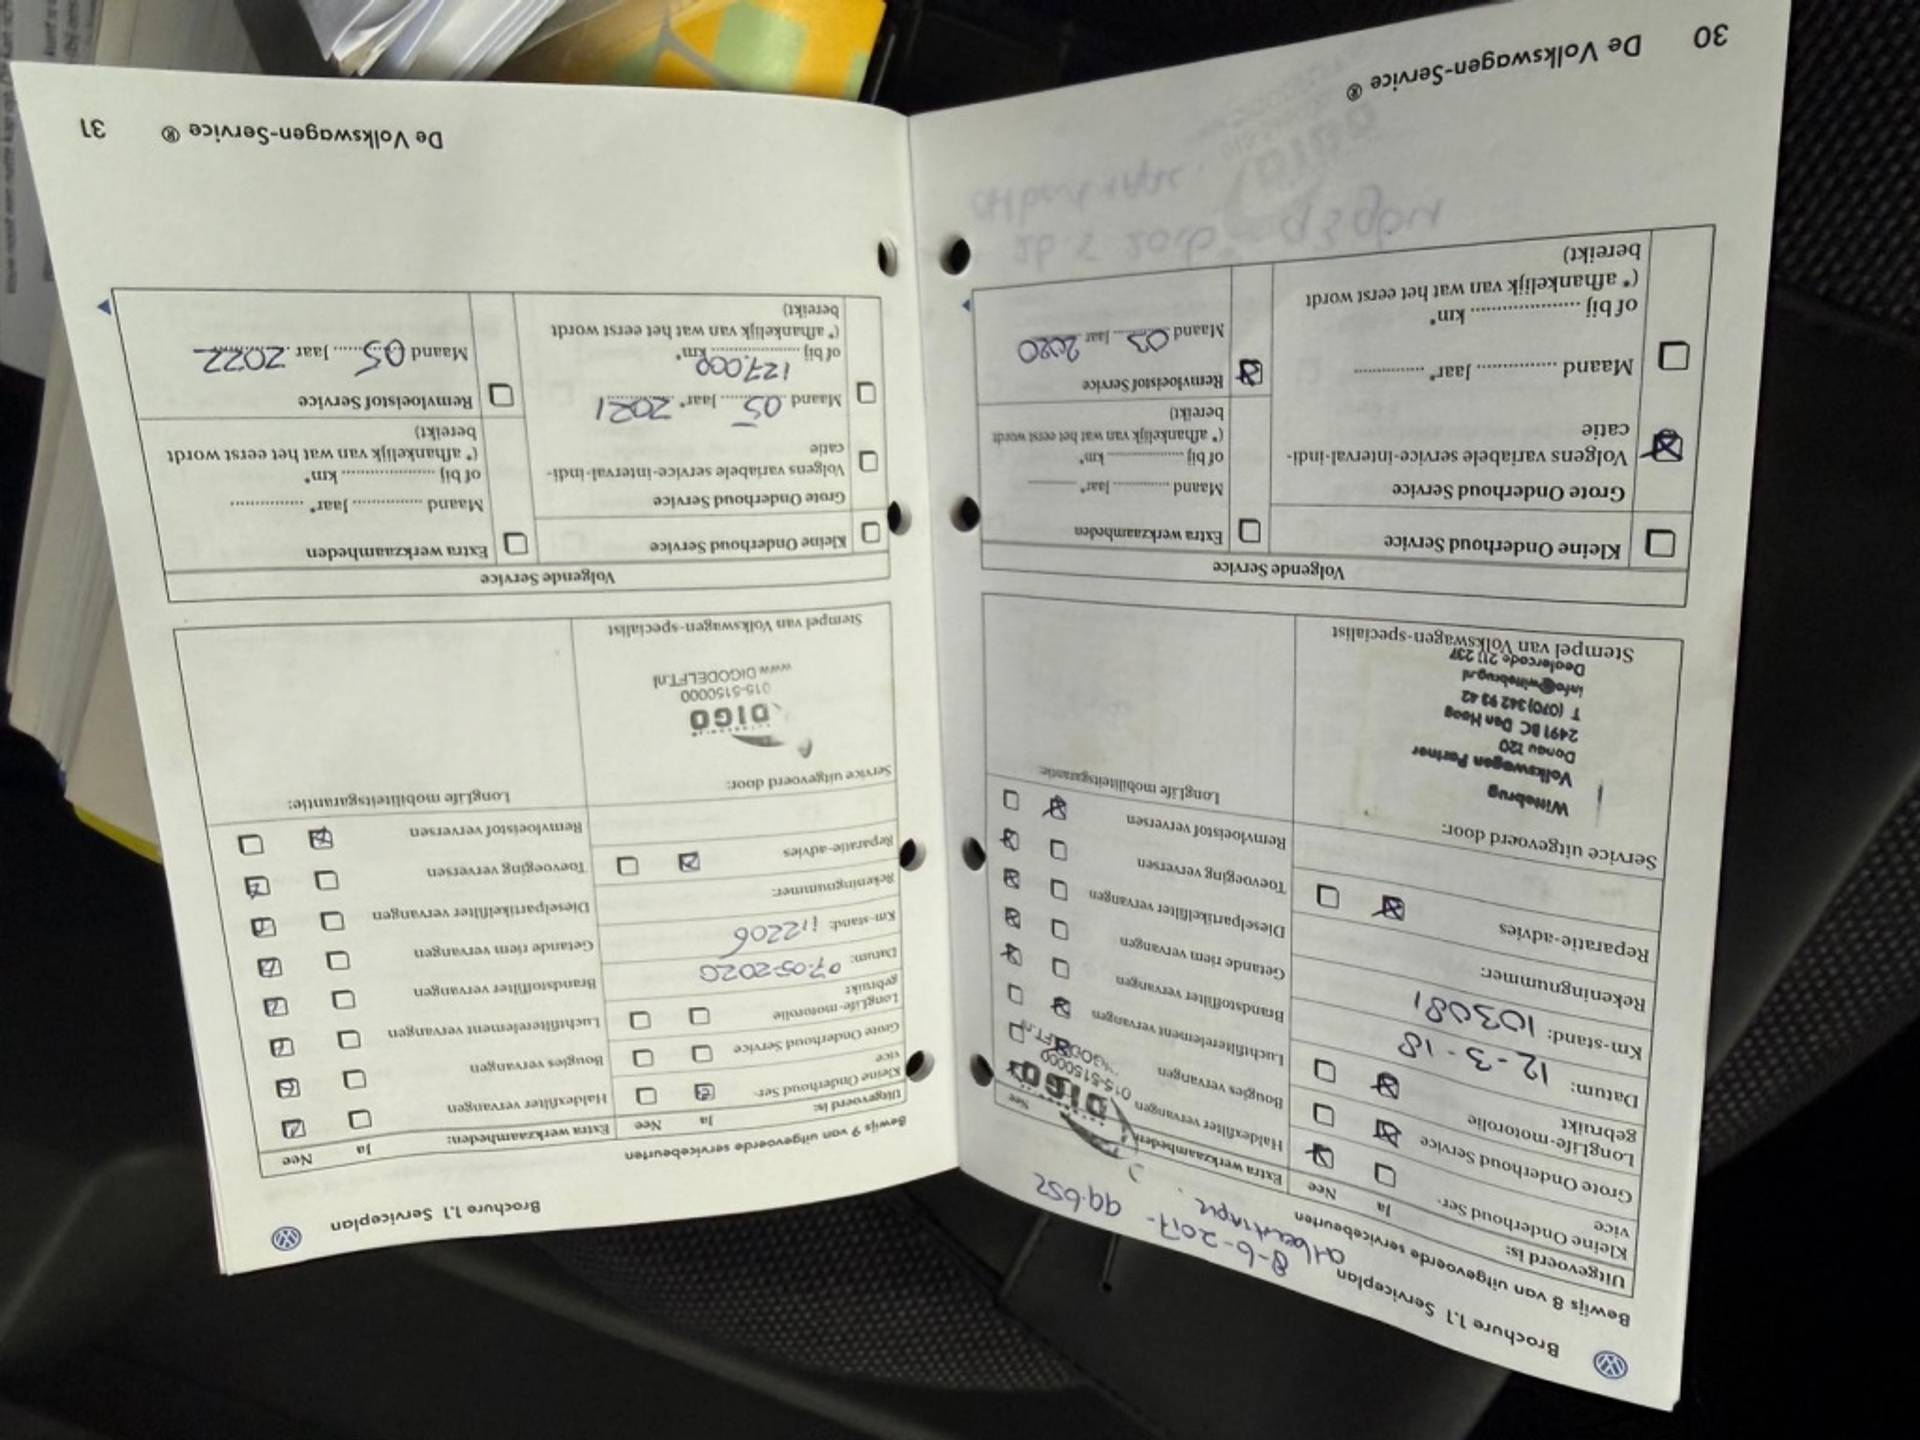 Brochure 1.1 Serviceplan
8-6-2017 - 99.652
Bewijs 8 van uitgevoerde servicebeurten
Uitgevoerd is:
Ja
Nee
Kleine Onderhoud Ser-
vice
Grote Onderhoud Service
LongLife-motorolie
gebruikt
Datum: 12-3-18
Km-stand: 103081
Rekeningnummer:
Reparatie-advies
Service uitgevoerd door:
Wittebrug
Volkswagen Partner
Donau 120
2491 BC Den Haag
T (070) 342 93 42
info@wittebrug.nl
Dealercode 211 237
Stempel van Volkswagen-specialist
Extra werkzaamheden
Nee
DIGO
015-5150000
Haldexfilter vervangen
Bougies vervangen
Luchtfilterelement vervangen
Brandstoffilter vervangen
Getande riem vervangen
Dieselpartikelfilter vervangen
Toevoeging verversen
Remvloeistof verversen
LongLife mobiliteitsgarantie:
Volgende Service
Kleine Onderhoud Service
Grote Onderhoud Service
Volgens variabele service-interval-indi-
catie
Maand ............... Jaar* .............
of bij .................... km*
(* afhankelijk van wat het eerst wordt
bereikt)
Extra werkzaamheden
Maand ............... Jaar* .............
of bij .................... km*
(* afhankelijk van wat het eerst wordt
bereikt)
Remvloeistof Service
Maand 03 Jaar 2020
30 De Volkswagen-Service ®
Brochure 1.1 Serviceplan
Bewijs 9 van uitgevoerde servicebeurten
Uitgevoerd is:
Ja
Nee
Kleine Onderhoud Ser-
vice
Grote Onderhoud Service
LongLife-motorolie
gebruikt
Datum: 07-05-2020
Km-stand: 112206
Rekeningnummer:
Reparatie-advies
Service uitgevoerd door:
DIGO
015-5150000
www.DIGODELFT.nl
Stempel van Volkswagen-specialist
Extra werkzaamheden:
Ja
Nee
Haldexfilter vervangen
Bougies vervangen
Luchtfilterelement vervangen
Brandstoffilter vervangen
Getande riem vervangen
Dieselpartikelfilter vervangen
Toevoeging verversen
Remvloeistof verversen
LongLife mobiliteitsgarantie:
Volgende Service
Kleine Onderhoud Service
Grote Onderhoud Service
Volgens variabele service-interval-indi-
catie
Maand 05 Jaar* 2021
127.000
of bij .................... km*
(* afhankelijk van wat het eerst wordt
bereikt)
Extra werkzaamheden
Maand ............... Jaar* .............
of bij .................... km*
(* afhankelijk van wat het eerst wordt
bereikt)
Remvloeistof Service
Maand 05 Jaar 2022
De Volkswagen-Service ® 31